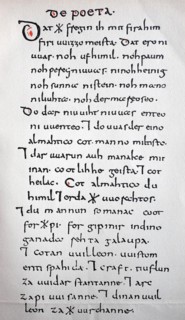 De poeta.
Dat * fregin ih mit firahim
firi uuizzo meista. Dat ero ni
uuas. noh ufhimil. noh paum
noh pereg ni uuas. ninoh heinig
noh sunna nistein. noh mano
niliuhta. noh der mareo seo.
Do dar niuuiht niuuas enteo
ni uuenteo. ⁊ do uuas der eino
almahtico cot manno miltisto.
⁊ dar uuarun auh manake mit
inan. cootlihhe geista. ⁊ cot
heilac. Cot almahtico du
himil ⁊ erda * uuorahtos.
⁊ du mannun so manac coot
for * pi. for gipimir indino
ganada rehta galaupa.
⁊ cotan uuilleon. uuistom
enti spahida. ⁊ craft. tiuflun
za uuidar stantanne. ⁊ arc
za pi uuisanne. ⁊ dinan uuil
leon za * uurchanne.